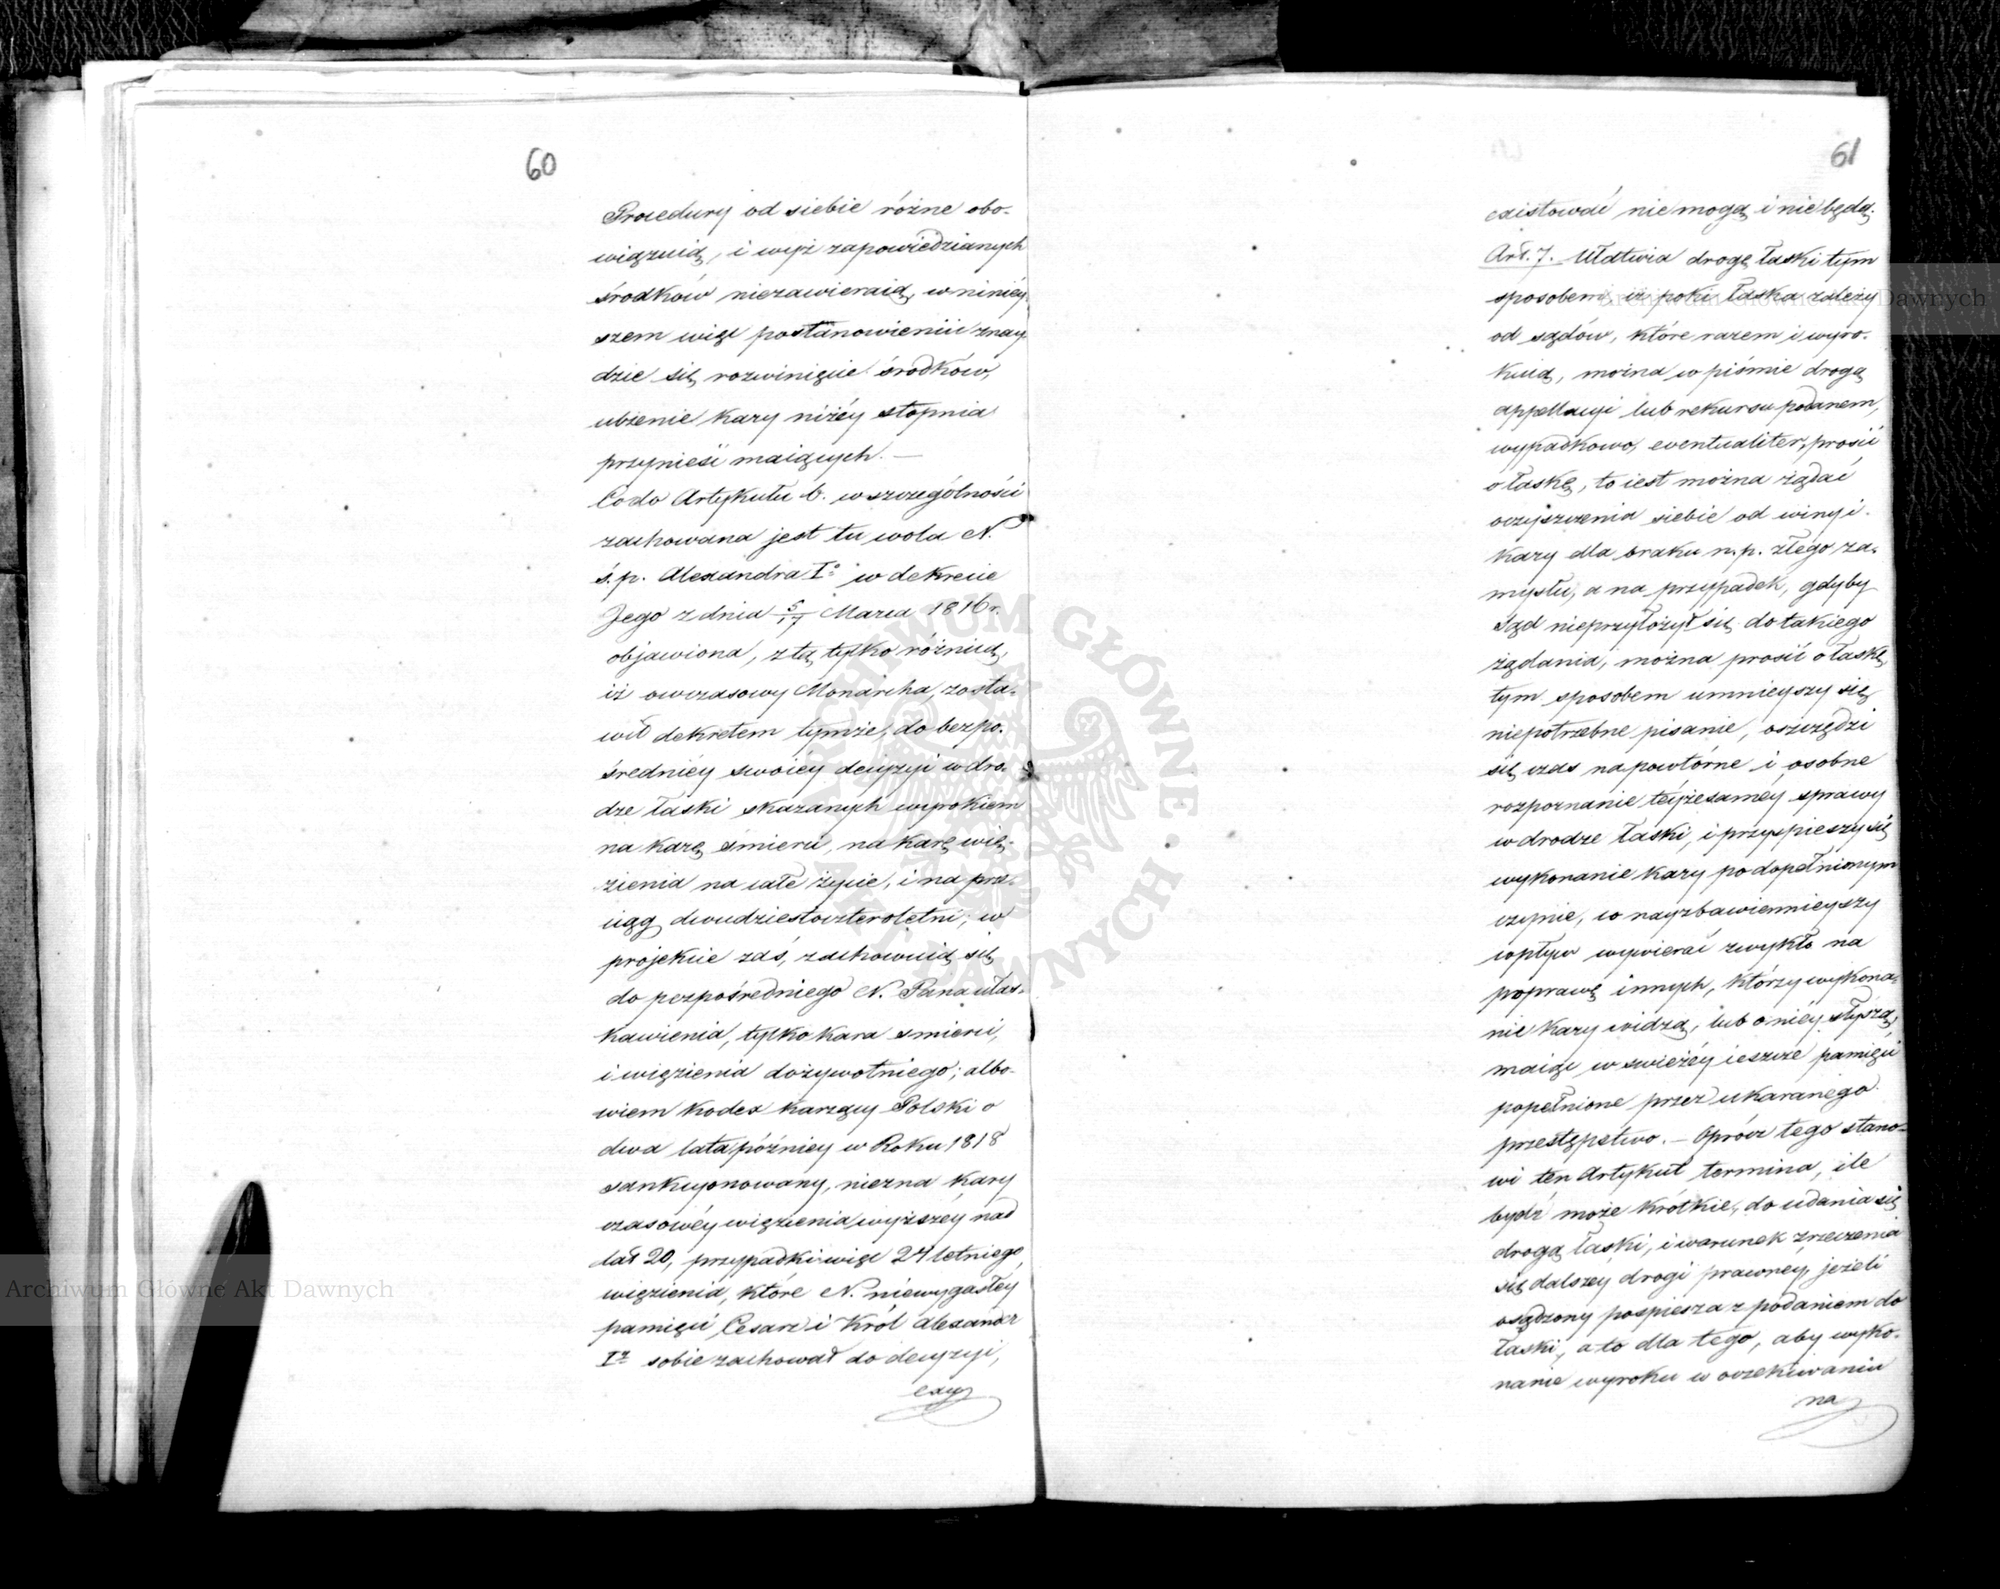 60
Procedury od siebie różne obo-
wiązuią, i wyż zapowiedzianych
środków niezawieraią, w niniéy-
szem więc postanowieniu znay-
dzie się rozwinięcie środków,
ulżenie kary niżéy stopnia
przynieść maiących. —
Co do Artykułu 6. w szczególności
zachowana jest tu wola N.
ś. p. Alexandra Iº w dekrecie
Jego z dnia 5/17 Marca 1816 r.
objawiona, z tą tylko różnicą,
iż owczasowy Monarcha, zosta-
wił dekretem tymże, do bezpo-
średniéy swoiéy decyzyi w dro-
dze łaski skazanych wyrokiem
na karę śmierci, na karę wię-
zienia na całe życie, i na prze-
ciąg dwudziestoczteroletni; w
projekcie zaś, zachowuią się
do bezpośredniego N. Pana ułas-
kawienia, tylko kara śmierci,
i więzienia dożywotniego; albo-
wiem Kodex karzący Polski o
dwa lata późniey w Roku 1818
sankcyonowany, niezna kary
czasowéy więzienia wyższey nad
lat 20, przypadki więc 24 letniego
więzienia, które N. niéwygasłéy
pamięci, Cesarz i Król Alexander
Iz sobie zachował do decyzyi,
exy
61
existować nie mogą i nie będą.
Art. 7. Ułatwia drogę łaski tym
sposobem, iż poki łaska zależy
od sądów, które razem i wyro-
kuią, można w piśmie drogą
appellacyi lub rekursu podanem,
wypadkowo, eventualiter, prosić
o łaskę, to iest można żądać
oczyszczenia siebie od winy i
kary dla braku n. p. złego za-
mysłu, a na przypadek, gdyby
Sąd nieprzyłożył się do takiego
żądania, można prosić o łaskę,
tym sposobem umnieyszy się
niepotrzebne pisanie, oszczędzi
się czas na powtórne i osobne
rozpoznanie téyżesamey sprawy
w drodze łaski, i przyspieszy się
wykonanie kary po dopełnionym
czynie, co nayzbawiennieyszy
wpływ wywierać zwykło na
poprawę innych, którzy wykona-
nie kary widzą, lub o niéy słyszą,
maiąc w swieżéy ieszcze pamięci
popełnione przez ukaranego
przestępstwo. — Oprócz tego stano-
wi ten Artykuł termina, ile
bydź może krótkie, do udania się
drogą łaski, i warunek zrzeczenia
się dalszey drogi prawney, jeżeli
osądzony pospiesza z podaniem do
łaski, a to dla tego, aby wyko-
nanie wyroku w oczekiwaniu
na
Archiwum Główne Akt Dawnych
Archiwum Główne Akt Dawnych
ARCHIWUM GŁÓWNE AKT DAWNYCH